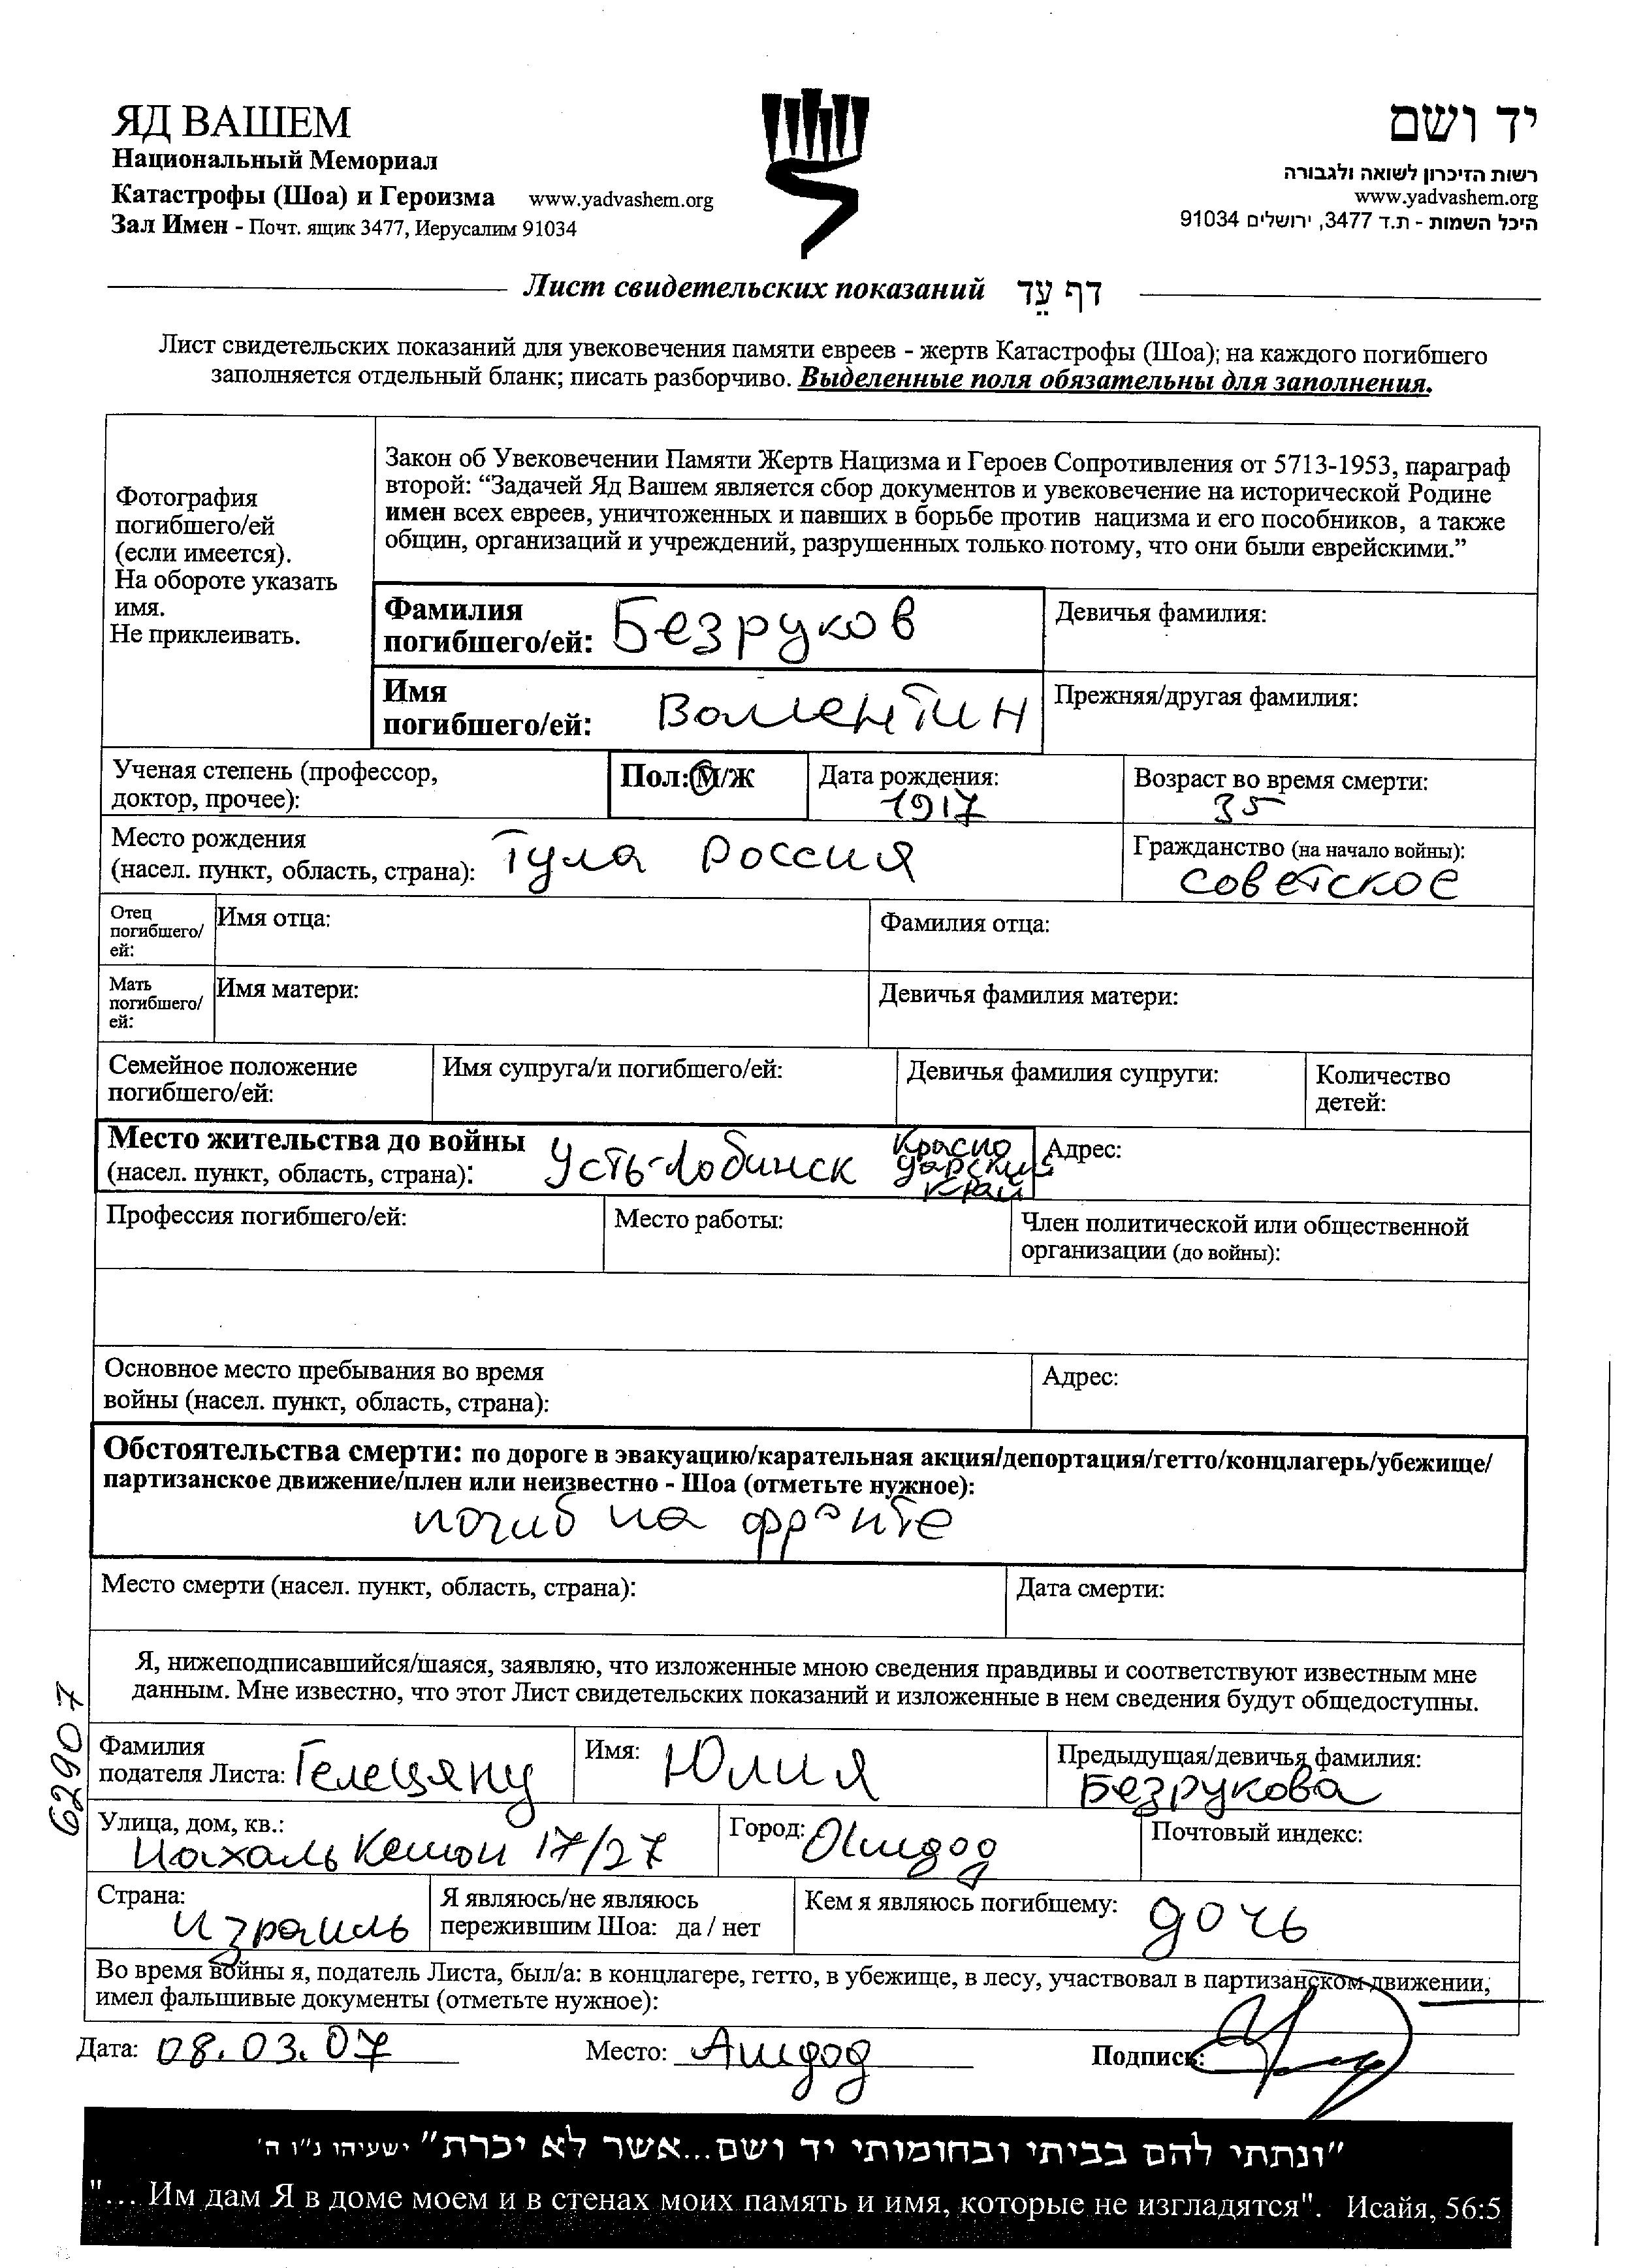 ЯД ВАШЕМ
Национальный Мемориал
Катастрофы (Шоа) и Героизма www.yadvashem.org
Зал Имен - Почт. ящик 3477, Иерусалим 91034
יד ושם
רשות הזיכרון לשואה ולגבורה
www.yadvashem.org
היכל השמות - ת.ד 3477, ירושלים 91034
Лист свидетельских показаний דף עֵד
Лист свидетельских показаний для увековечения памяти евреев - жертв Катастрофы (Шоа); на каждого погибшего
заполняется отдельный бланк; писать разборчиво. Выделенные поля обязательны для заполнения.
Фотография
погибшего/ей
(если имеется).
На обороте указать
имя.
Не приклеивать.
Закон об Увековечении Памяти Жертв Нацизма и Героев Сопротивления от 5713-1953, параграф
второй: “Задачей Яд Вашем является сбор документов и увековечение на исторической Родине
имен всех евреев, уничтоженных и павших в борьбе против нацизма и его пособников, а также
общин, организаций и учреждений, разрушенных только потому, что они были еврейскими.”
Фамилия
погибшего/ей: Безруков
Девичья фамилия:
Имя
погибшего/ей: Валентин
Прежняя/другая фамилия:
Ученая степень (профессор,
доктор, прочее):
Пол: М/Ж
Дата рождения:
1917
Возраст во время смерти:
35
Место рождения
(насел. пункт, область, страна): Тула Россия
Гражданство (на начало войны):
советское
Отец
погибшего/
ей:
Имя отца:
Фамилия отца:
Мать
погибшего/
ей:
Имя матери:
Девичья фамилия матери:
Семейное положение
погибшего/ей:
Имя супруга/и погибшего/ей:
Девичья фамилия супруги:
Количество
детей:
Место жительства до войны
(насел. пункт, область, страна): Усть-Лабинск
Красно
дарский
край
Адрес:
Профессия погибшего/ей:
Место работы:
Член политической или общественной
организации (до войны):
Основное место пребывания во время
войны (насел. пункт, область, страна):
Адрес:
Обстоятельства смерти: по дороге в эвакуацию/карательная акция/депортация/гетто/концлагерь/убежище/
партизанское движение/плен или неизвестно - Шоа (отметьте нужное):
погиб на фронте
Место смерти (насел. пункт, область, страна):
Дата смерти:
Я, нижеподписавшийся/шаяся, заявляю, что изложенные мною сведения правдивы и соответствуют известным мне
данным. Мне известно, что этот Лист свидетельских показаний и изложенные в нем сведения будут общедоступны.
62907
Фамилия
подателя Листа: Гелецяну
Имя: Юлия
Предыдущая/девичья фамилия:
Безрукова
Улица, дом, кв.:
Нахаль Кешон 17/27
Город: Ашдод
Почтовый индекс:
Страна:
Израиль
Я являюсь/не являюсь
пережившим Шоа: да / нет
Кем я являюсь погибшему: дочь
Во время войны я, податель Листа, был/а: в концлагере, гетто, в убежище, в лесу, участвовал в партизанском движении,
имел фальшивые документы (отметьте нужное):
Дата: 08.03.07 Место: Ашдод Подпись:
"ונתתי להם בביתי ובחומותי יד ושם...אשר לא יכרת" ישעיהו נ"ו ה'
"... Им дам Я в доме моем и в стенах моих память и имя, которые не изгладятся". Исайя, 56:5